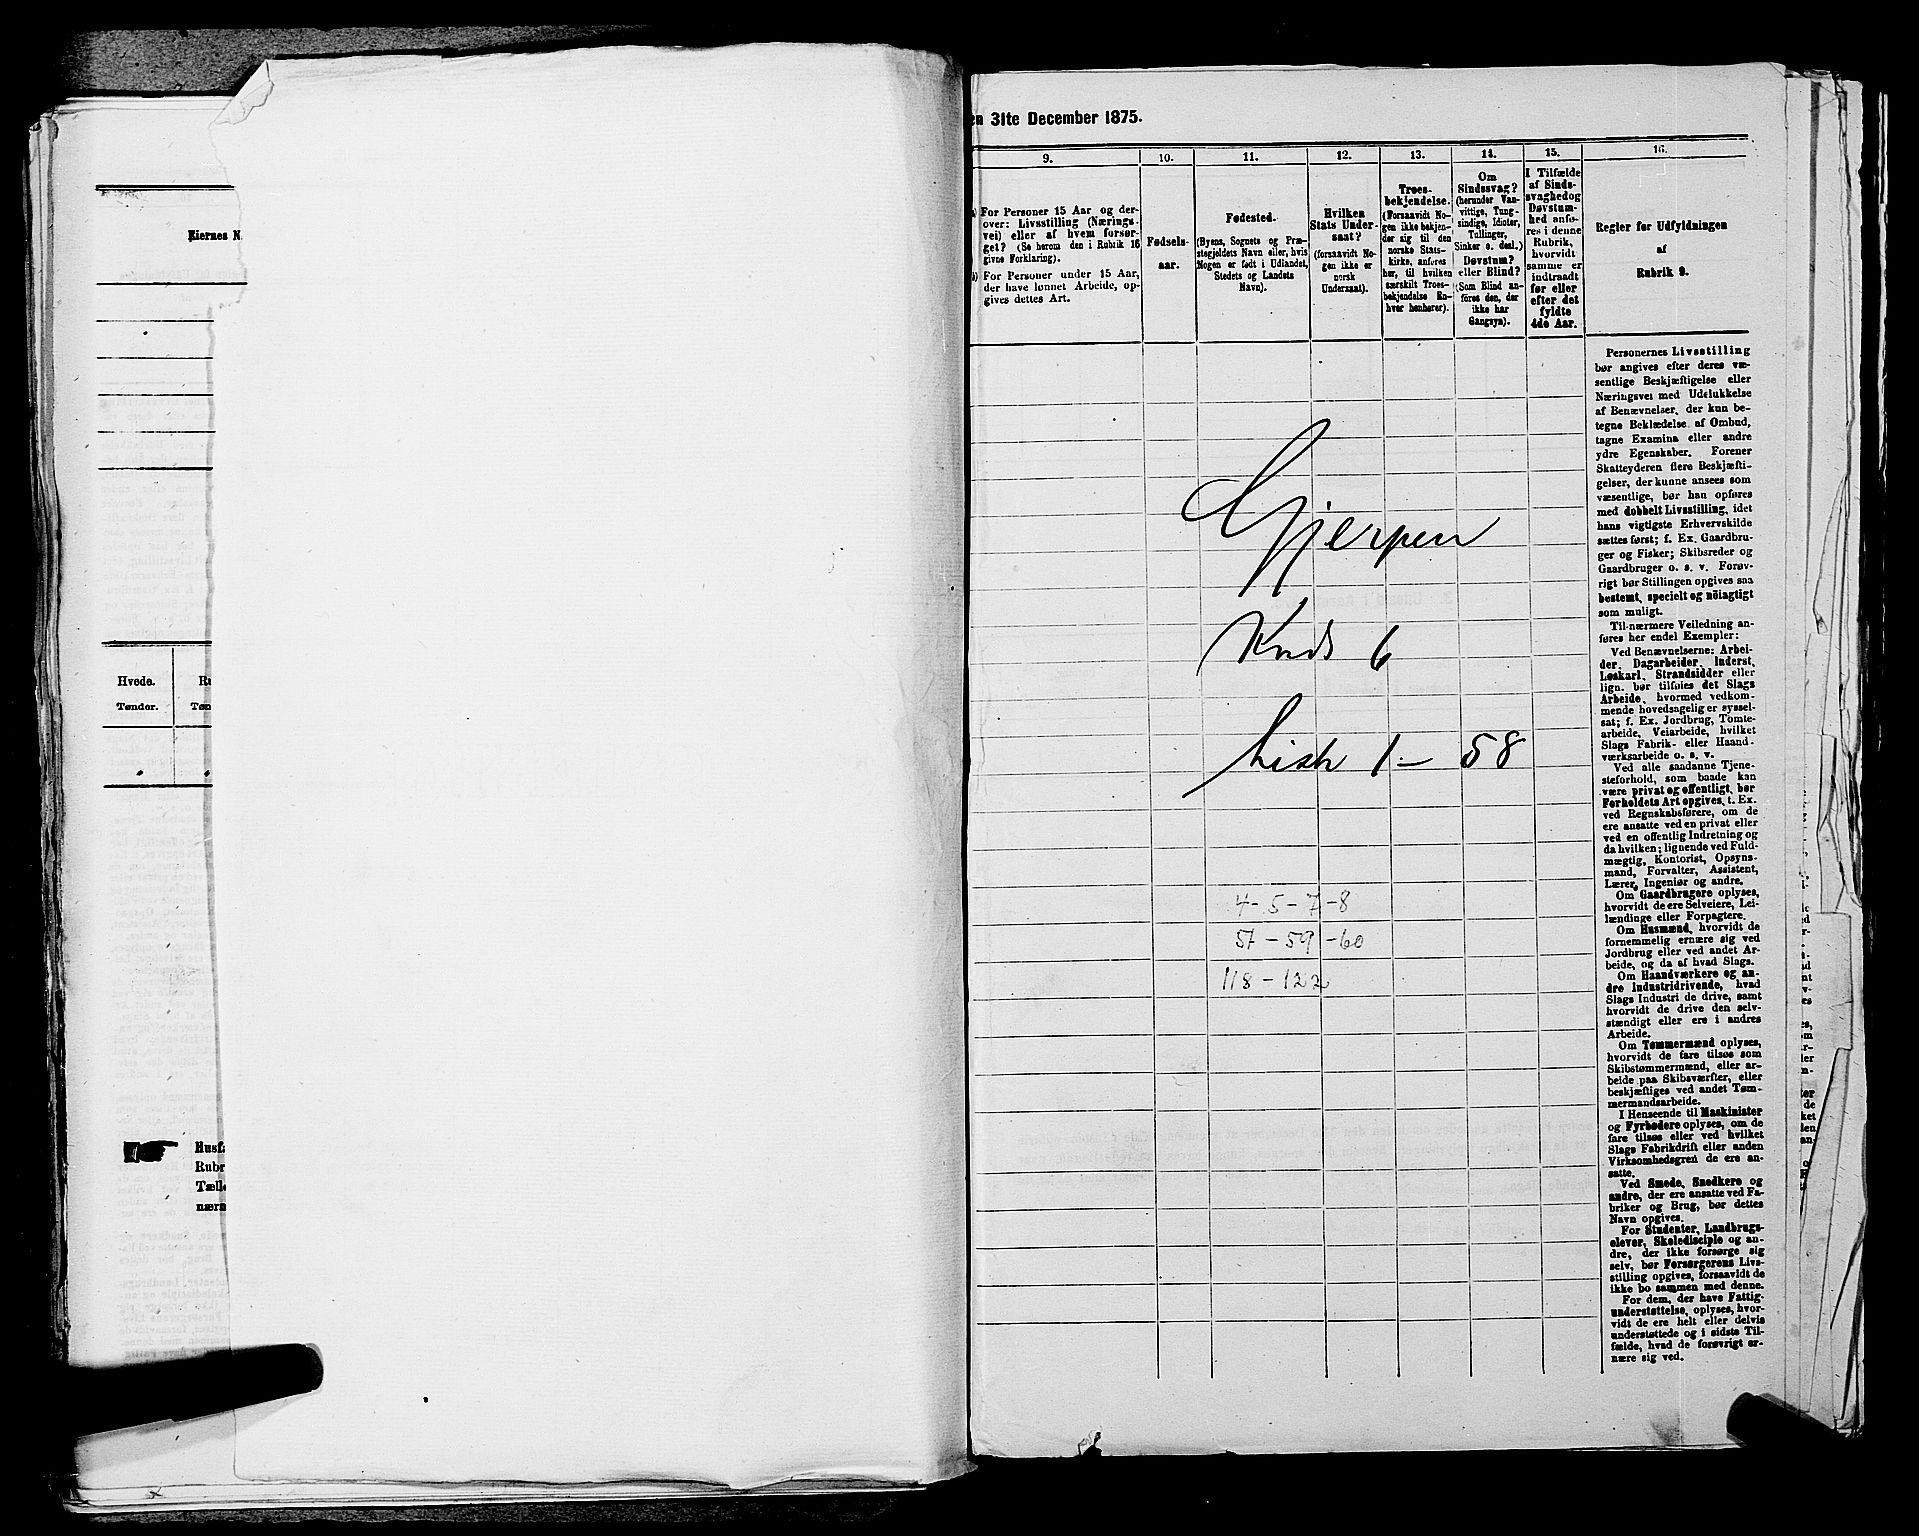 Eiernes N
Hvede.
Tønder.
Ru
Tøn
Husfa
Rubr
Tælle
nærm
en 31te December 1875.
9.
10.
11.
12.
13.
14.
15.
16.
For Personer 15 Aar og der-
over: Livsstilling (Nærings-
vei) eller af hvem forsør-
get? (Se herom den i Rubrik 16
givne Forklaring).
For Personer under 15 Aar,
der have lønnet Arbeide, op-
gives dettes Art.
Fødsels-
aar.
Fødested.
(Byens, Sognets og Præ-
stegjeldets Navn eller, hvis
Nogen er født i Udlandet,
Stedets og Landets
Navn).
Hvilken
Stats Under-
saat?
(forsaavidt No-
gen ikke er
norsk
Undersaat).
Troes-
bekjendelse.
(Forsaavidt No-
gen ikke bekjen-
der sig til den
norske Stats-
kirke, anføres
her, til hvilken
særskilt Troes-
bekjendelse En-
hver henhører).
Om
Sindssvag?
(herunder Van-
vittige, Tung-
sindige, Idioter,
Tullinger,
Sinker o. desl.)
Døvstum?
eller Blind?
(Som Blind an-
føres den, der
ikke har
Gangsyn).
I Tilfælde
af Sinds-
svaghed og
Døvstum-
hed anfø-
res i denne
Rubrik,
hvorvidt
samme er
indtraadt
før eller
efter det
fyldte
4de Aar.
Regler for Udfyldningen
af
Rubrik 9.
Personernes Livsstilling
bør angives efter deres væ-
sentlige Beskjæftigelse eller
Næringsvei med Udelukkelse
af Benævnelser, der kun be-
tegne Beklædelse af Ombud,
tagne Examina eller andre
ydre Egenskaber. Forener
Skatteyderen flere Beskjæfti-
gelser, der kunne ansees som
væsentlige, bør han opføres
med dobbelt Livsstilling, idet
hans vigtigste Erhvervskilde
sættes først; f. Ex. Gaardbru-
ger og Fisker; Skibsreder og
Gaardbruger o. s. v. Forøv-
rigt bør Stillingen opgives saa
bestemt, specielt og nöiagtigt
som muligt.
Til nærmere Veiledning an-
føres her endel Exempler:
Ved Benævnelserne: Arbei-
der, Dagarbeider, Inderst,
Løskarl, Strandsidder eller
lign. bør tilføies det Slags
Arbeide, hvormed vedkom-
mende hovedsagelig er syssel-
sat; f. Ex. Jordbrug, Tomte-
arbeide, Veiarbeide, hvilket
Slags Fabrik- eller Haand-
værksarbeide o. s. v.
Ved alle saadanne Tjene-
steforhold, som baade kan
være privat og offentligt, bør
Forholdets Art opgives, t. Ex.
ved Regnskabsførere, om de
ere ansatte ved en privat eller
ved en offentlig Indretning og
da hvilken; lignende ved Fuld-
mægtig, Kontorist, Opsyns-
mand, Forvalter, Assistent,
Lærer, Ingeniør og andre.
Om Gaardbrugere oplyses,
hvorvidt de ere Selveiere, Lei-
lændinge eller Forpagtere.
Om Husmænd, hvorvidt de
fornemmelig ernære sig ved
Jordbrug eller ved andet Ar-
beide, og da af hvad Slags.
Om Haandværkere og an-
dre Industridrivende, hvad
Slags Industri de drive, samt
hvorvidt de drive den selv-
stændigt eller ere i andres
Arbeide.
Om Tømmermænd oplyses,
hvorvidt de fare tilsøs som
Skibstømmermænd, eller ar-
beide paa Skibsværfter, eller
beskjæftiges ved andet Tøm-
mermandsarbeide.
I Henseende til Maskinister
og Fyrbødere oplyses, om de
fare tilsøs eller ved hvilket
Slags Fabrikdrift eller anden
Virksomhedsgren de ere an-
satte.
Ved Smede, Snedkere og
andre, der ere ansatte ved Fa-
briker og Brug, bør dettes
Navn opgives.
For Studenter, Landbrugs-
elever, Skoledisciple og an-
dre, der ikke forsørge sig
selv, bør Forsørgerens Livs-
stilling opgives, forsaavidt de
ikke bo sammen med denne.
For dem, der have Fattig-
understøttelse, oplyses, hvor-
vidt de ere helt eller delvis
understøttede og i sidste Til-
fælde, hvad de forøvrigt er-
nære sig ved.
Gjerpen
Krds 6
Liste 1 – 58
4 - 5 - 7 - 8
57 - 59 - 60
118 - 122